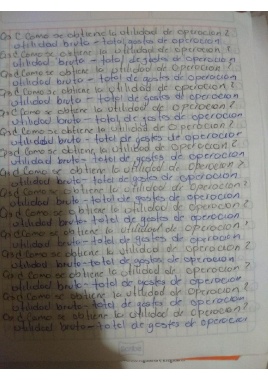 Cn d Como se obtiene la utilidad de operacion?
utilidad bruta - total gastos de operacion
Cn d Como se obtiene la utilidad de operacion?
utilidad bruta - total de gastos de operacion
Cn d Como se obtiene la utilidad de operacion?
utilidad bruta - total de gastos de operacion
Cn d Como se obtiene la utilidad de operacion?
utilidad bruta - total de gastos de operacion
Cn d Como se obtiene la utilidad de operacion?
utilidad bruta - total de gastos de operacion
Cn d Como se obtiene la utilidad de operacion?
utilidad bruta - total de gastos de operacion
Cn d Como se obtiene la utilidad de operacion?
utilidad bruta - total de gastos de operacion
Cn d Como se obtiene la utilidad de operacion?
utilidad bruta - total de gastos de operacion
Cn d Como se obtiene la utilidad de operacion?
utilidad bruta - total de gastos de operacion
Cn d Como se obtiene la utilidad de operacion?
utilidad bruta - total de gastos de operacion
Cn d Como se obtiene la utilidad de operacion?
utilidad bruta - total de gastos de operacion
Cn d Como se obtiene la utilidad de operacion?
utilidad bruta - total de gastos de operacion
Cn d Como se obtiene la utilidad de operacion?
utilidad bruta - total de gastos de operacion